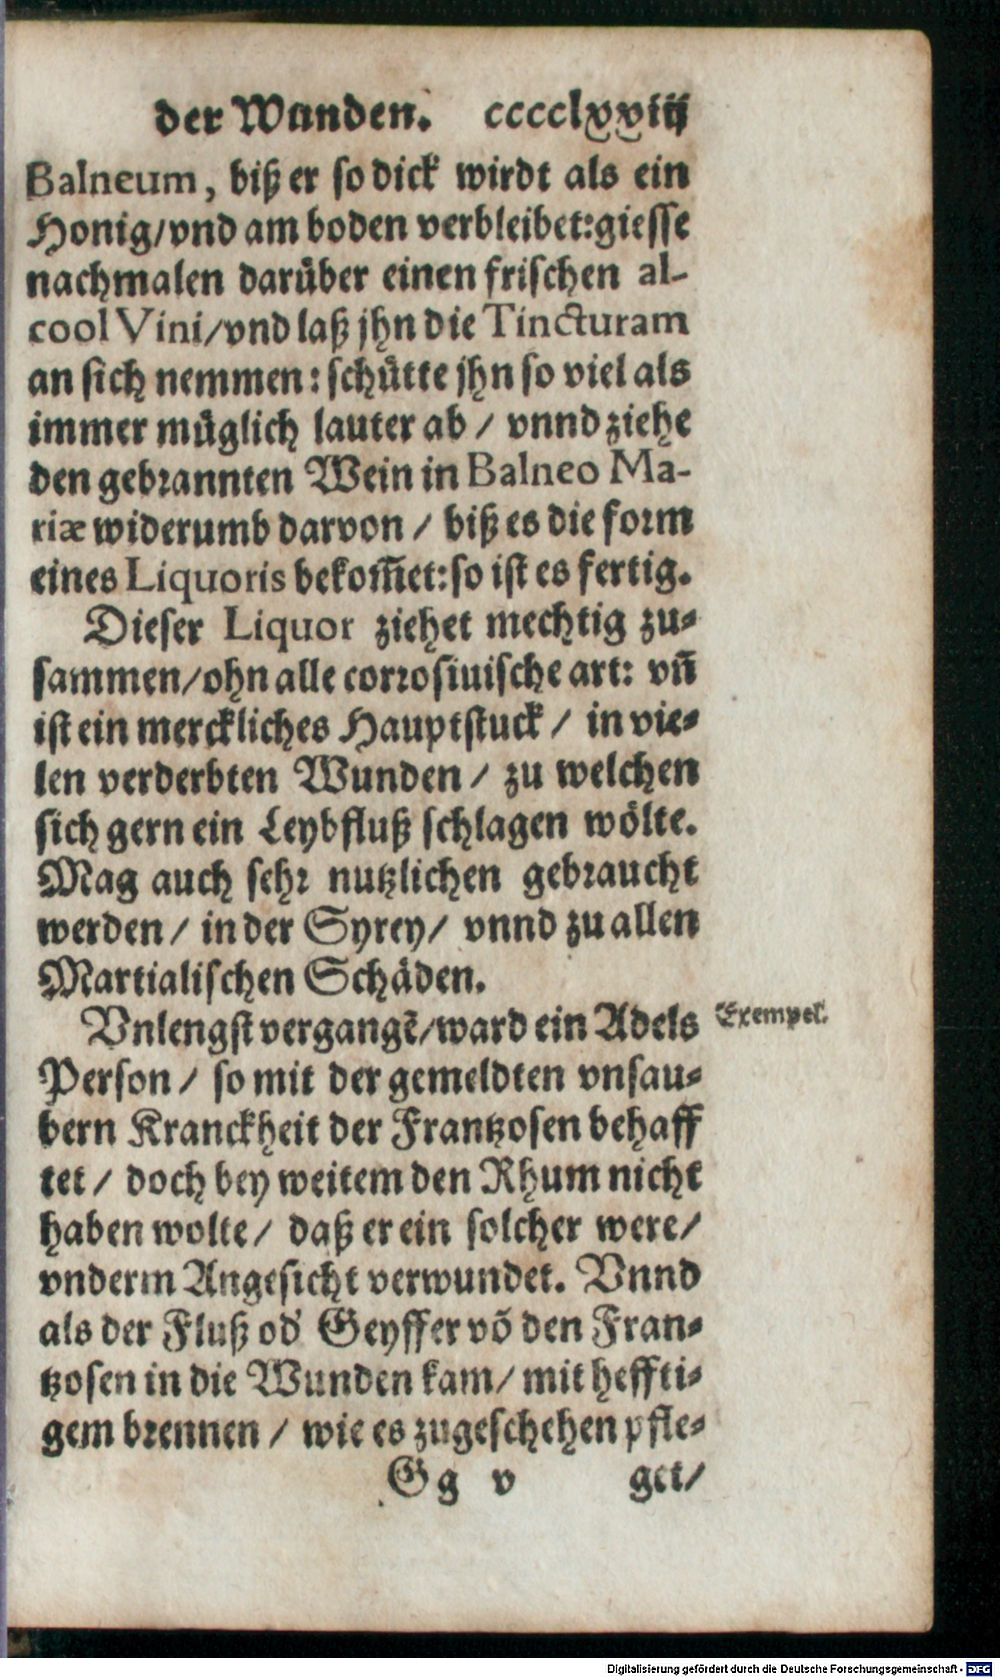 der Wunden. cccclxxiij
Balneum, biß er so dick wirdt als ein
Honig/vnd am boden verbleibet: giesse
nachmalen darüber einen frischen al-
cool Vini/vnd laß jhn die Tincturam
an sich nemmen: schütte jhn so viel als
immer müglich lauter ab / vnnd ziehe
den gebrannten Wein in Balneo Ma-
riæ widerumb darvon / biß es die form
eines Liquoris bekom̃et: so ist es fertig.
Dieser Liquor ziehet mechtig zu-
sammen/ohn alle corrosiuische art: vñ
ist ein merckliches Hauptstuck / in vie-
len verderbten Wunden / zu welchen
sich gern ein Leybfluß schlagen wölte.
Mag auch sehr nutzlichen gebraucht
werden / in der Syrey/ vnnd zu allen
Martialischen Schäden.
Vnlengst vergangẽ/ward ein Adels
Exempel.
Person / so mit der gemeldten vnsau-
bern Kranckheit der Frantzosen behaff
tet / doch bey weitem den Rhum nicht
haben wolte / daß er ein solcher were/
vnderm Angesicht verwundet. Vnnd
als der Fluß od' Geyffer võ den Fran-
tzosen in die Wunden kam/ mit heffti-
gem brennen / wie es zugeschehen pfle-
Gg v get/
Digitalisierung gefördert durch die Deutsche Forschungsgemeinschaft - DFG